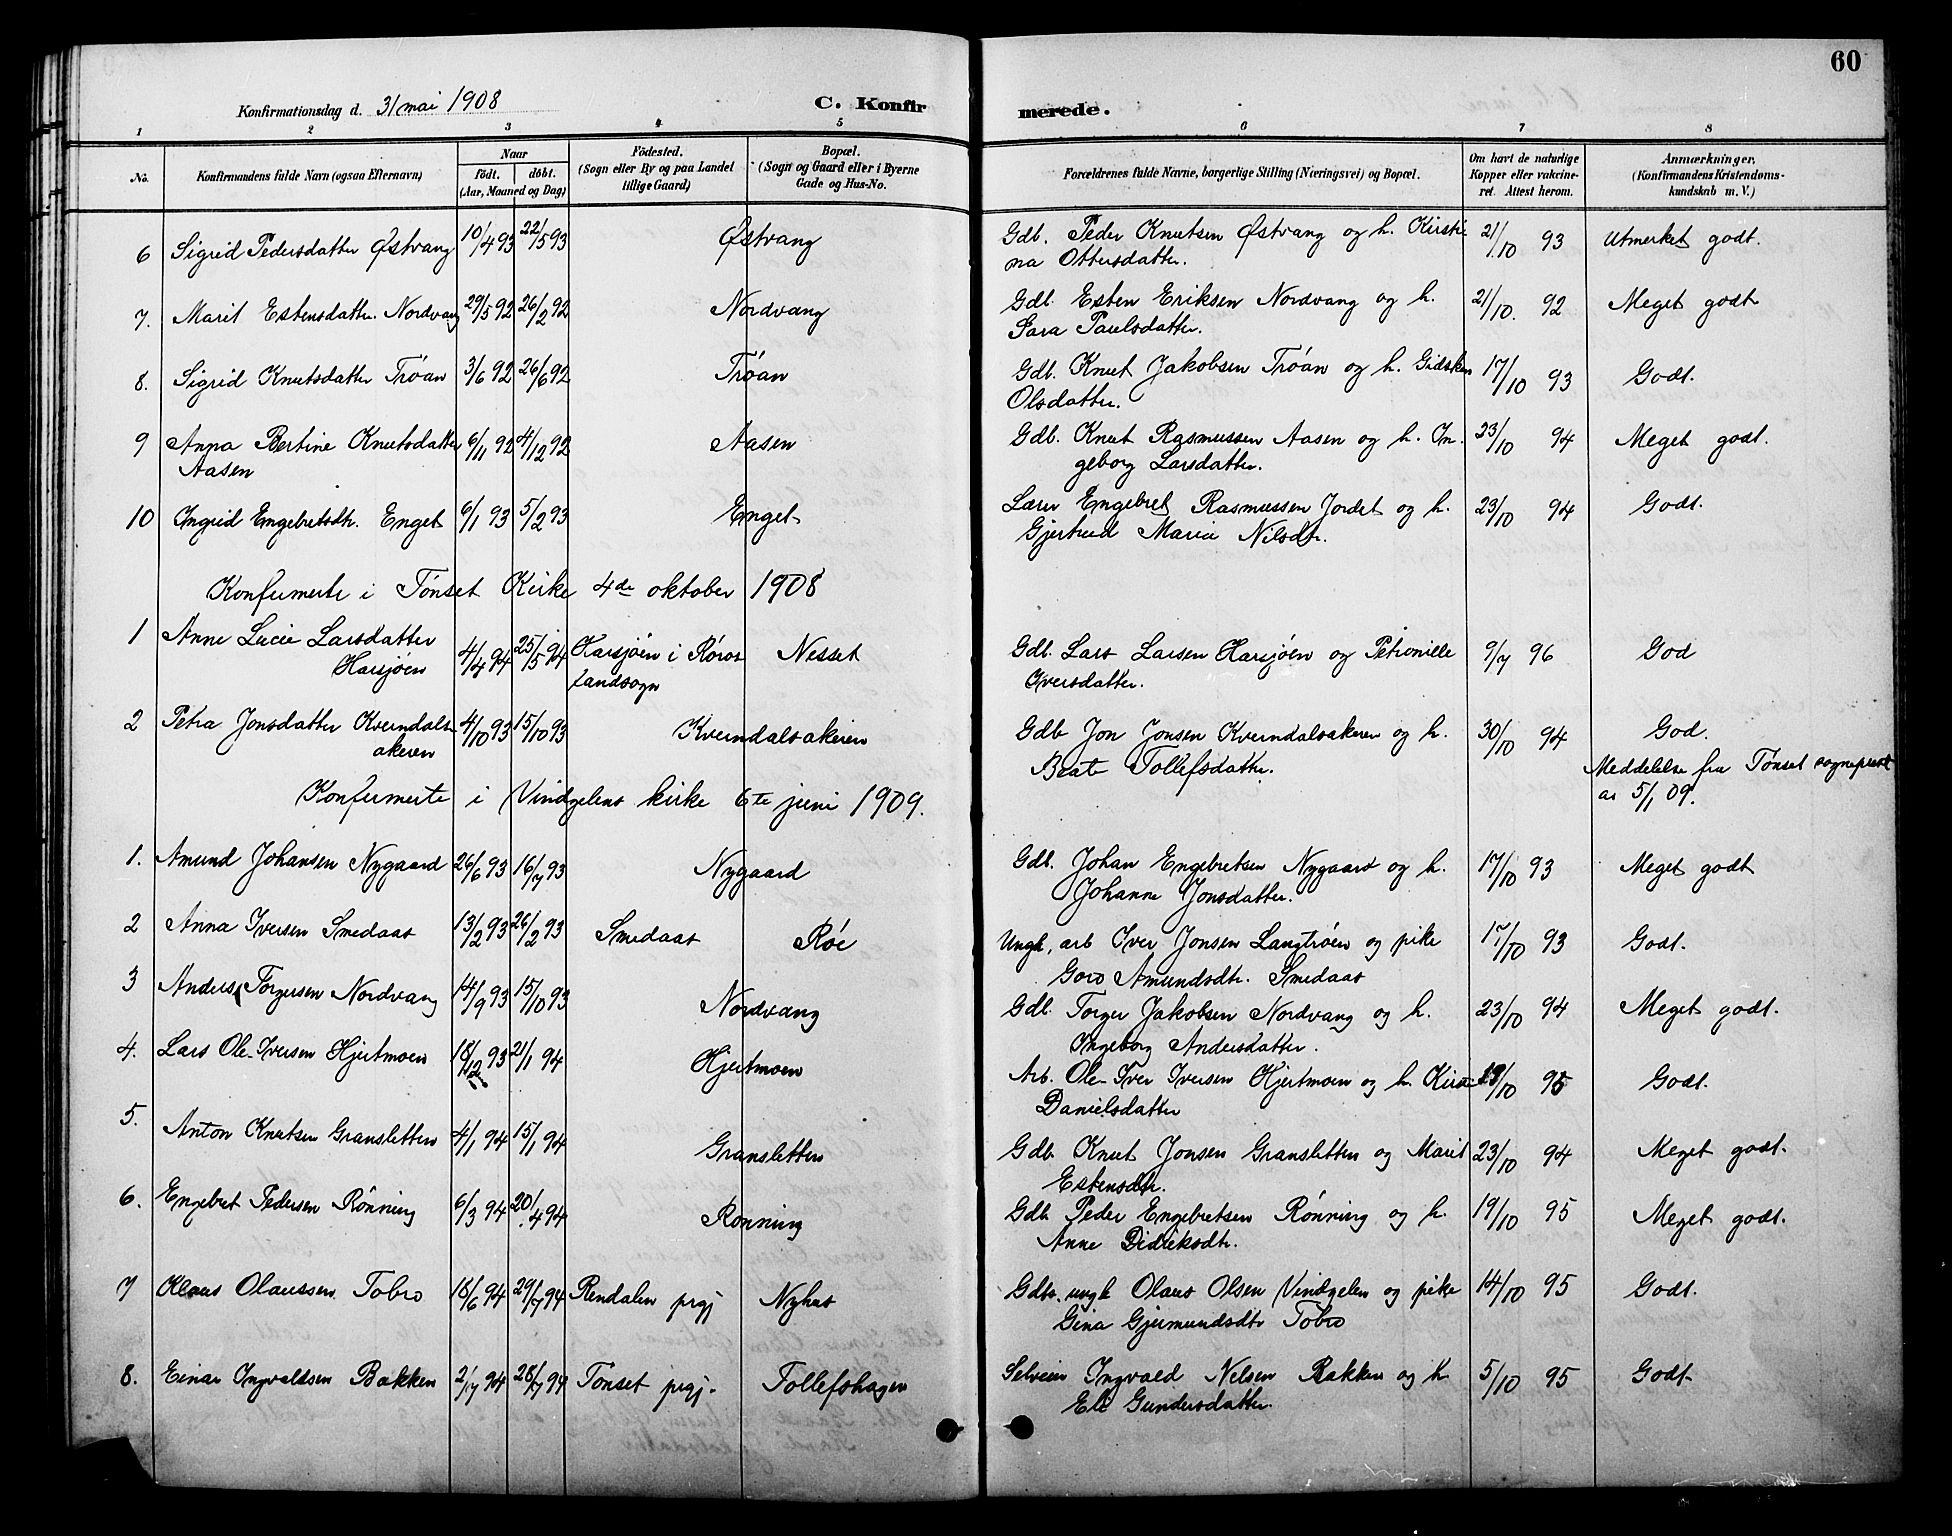 60
Konfirmationsdag d. 31 mai 1908 C. Konfirmerede.
1 2 3 4 5 6 7 8
No. Konfirmandens fulde Navn (ogsaa Efternavn) Naar født. døbt. (Aar, Maaned og Dag) Födested. (Sogn eller By og paa Landet tillige Gaard) Bopæl. (Sogn og Gaard eller i Byerne Gade og Hus-No. Forældrenes fulde Navne, borgerlige Stilling (Næringsvei) og Bopæl. Om havt de naturlige Kopper eller vakcineret. Attest herom. Anmærkninger. (Konfirmandens Kristendomskundskab m. V.)
6 Sigrid Pedersdatter Østvang 10/4 93 22/5 93 Østvang Gdb. Peder Knutsen Østvang og h. Kirsti- 21/10 93 Utmerket godt.
na Ottersdatter.
7. Marit Estensdatter Nordvang 29/5 92 26/2 92 Nordvang Gdb. Esten Eriksen Nordvang og h. 21/10. 92 Meget godt
Sara Paulsdatter.
8. Sigrid Knutsdatter Trøan 3/6 92 26/6 92 Trøan Gdb. Knut Jakobsen Trøan og h. Gidsken 17/10 93 Godt.
Olsdatter.
9 Anna Bertine Knutsdatter 6/11 92 4/12 92 Aasen Gdb. Knut Rasmussen Aasen og h. In- 23/10 94 Meget godt.
Aasen geborg Larsdatter.
10 Ingrid Engebretsdtr. Enget 6/1 93 5/2 93 Enget Lærer Engebret Rasmussen Jordet og h. 23/10 94 Godt.
Gjertrud Marie Nilsdtr.
Konfirmerte i Tønset Kirke 4de oktober 1908
1 Anne Lucie Larsdatter 4/4 94 25/5 94 Harsjøen i Røros Nesset Gdb. Lars Larsen Harsjøen og Petronille 9/7 96 God
Harsjøen landsogn Iversdatter.
2 Petra Jonsdatter Kverndals- 4/10 93 15/10 93 Kverndalsakeren Gdb Jon Jonsen Kverndalsakeren og h. 30/10 94 God.
akeren Beate Tollefsdatter. Meddelelse fra Tønset sogneprest
av 5/1 09.
Konfirmerte i Vindgelens kirke 6te juni 1909.
1. Amund Johansen Nygaard 26/6 93 16/7 93 Nygaard Gdb. Johan Engebretsen Nygaard og h. 17/10 93 Meget godt
Johanne Jonsdatter.
2 Anna Iversen Smedaas 13/2 93 26/2 93 Smedaas Røe Ungk. arb Iver Jonsen Langtrøen og pike 17/10 93 Godt.
Goro Amundsdtr. Smedaas
3 Anders Torgersen Nordvang 14/9 93 15/10 93 Nordvang Gdb. Torger Jakobsen Nordvang og h. 23/10 94 Meget godt.
Ingeborg Andersdatter.
4. Lars Ole-Iversen Hjertmoen 18/12 93 21/1 94 Hjertmoen Arb. Ole-Iver Iversen Hjertmoen og h. 19/10 95 Godt.
Danielsdatter
5. Anton Knutsen Gransletten 4/1 94 15/1 94 Gransletten Gdb Knut Jonsen Gransletten og Marit 23/10 94 Meget godt.
Estensdtr.
6. Engebret Pedersen Rønning 6/3 94 20/4 94 Rønning Gdb. Peder Engebretsen Rønning og h. 19/10 95 Meget godt.
Anne Didriksdtr.
7 Klaus Olaussen Tobro 18/6 94 29/7 94 Rendalen prgj Nyhus Gdbs. ungk Olaus Olsen Vindgelen og pike 14/10 95 Godt.
Gina Gjermundsdtr Tobro
8. Einar Ingvaldsen Bakken 2/7 94 28/7 94 Tønset prgj. Tollefshagen Selveier Ingvald Nilsen Bakken og h 5/10 95 Godt.
Eli Gundersdatter.